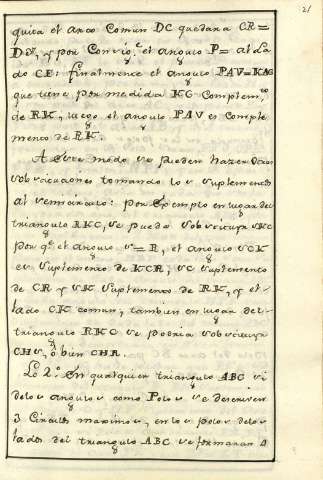 21
quita el arco Comun DC quedara CR=
DN, y por Consig.te el angulo P= al la
do CE: finalmente el angulo PAV=KAG
que tiene por medida KG Complem.to
de RK, luego el angulo PAV es Comple
mento de RK.
A este modo se pueden hazer otras
sobstituciones tomando los suplementos
al semicirculo: por Exemplo en lugar del
triangulo RKC, se puede sobstituir SKC
por q.e el angulo S=R, el angulo SCK
es Suplemento de KCR; SC suplemento
de CR y SK Suplemento de RK, y el
lado CK comun; tambien en lugar del
triangulo RKC se podria sobstituir
CHS, ò bien CHR.
Lo 2.o En qualquier triangulo ABC si
de los angulos como Polos se descriven
3 Circulos maximos, en los polos de los
lados del triangulo ABC se formaran